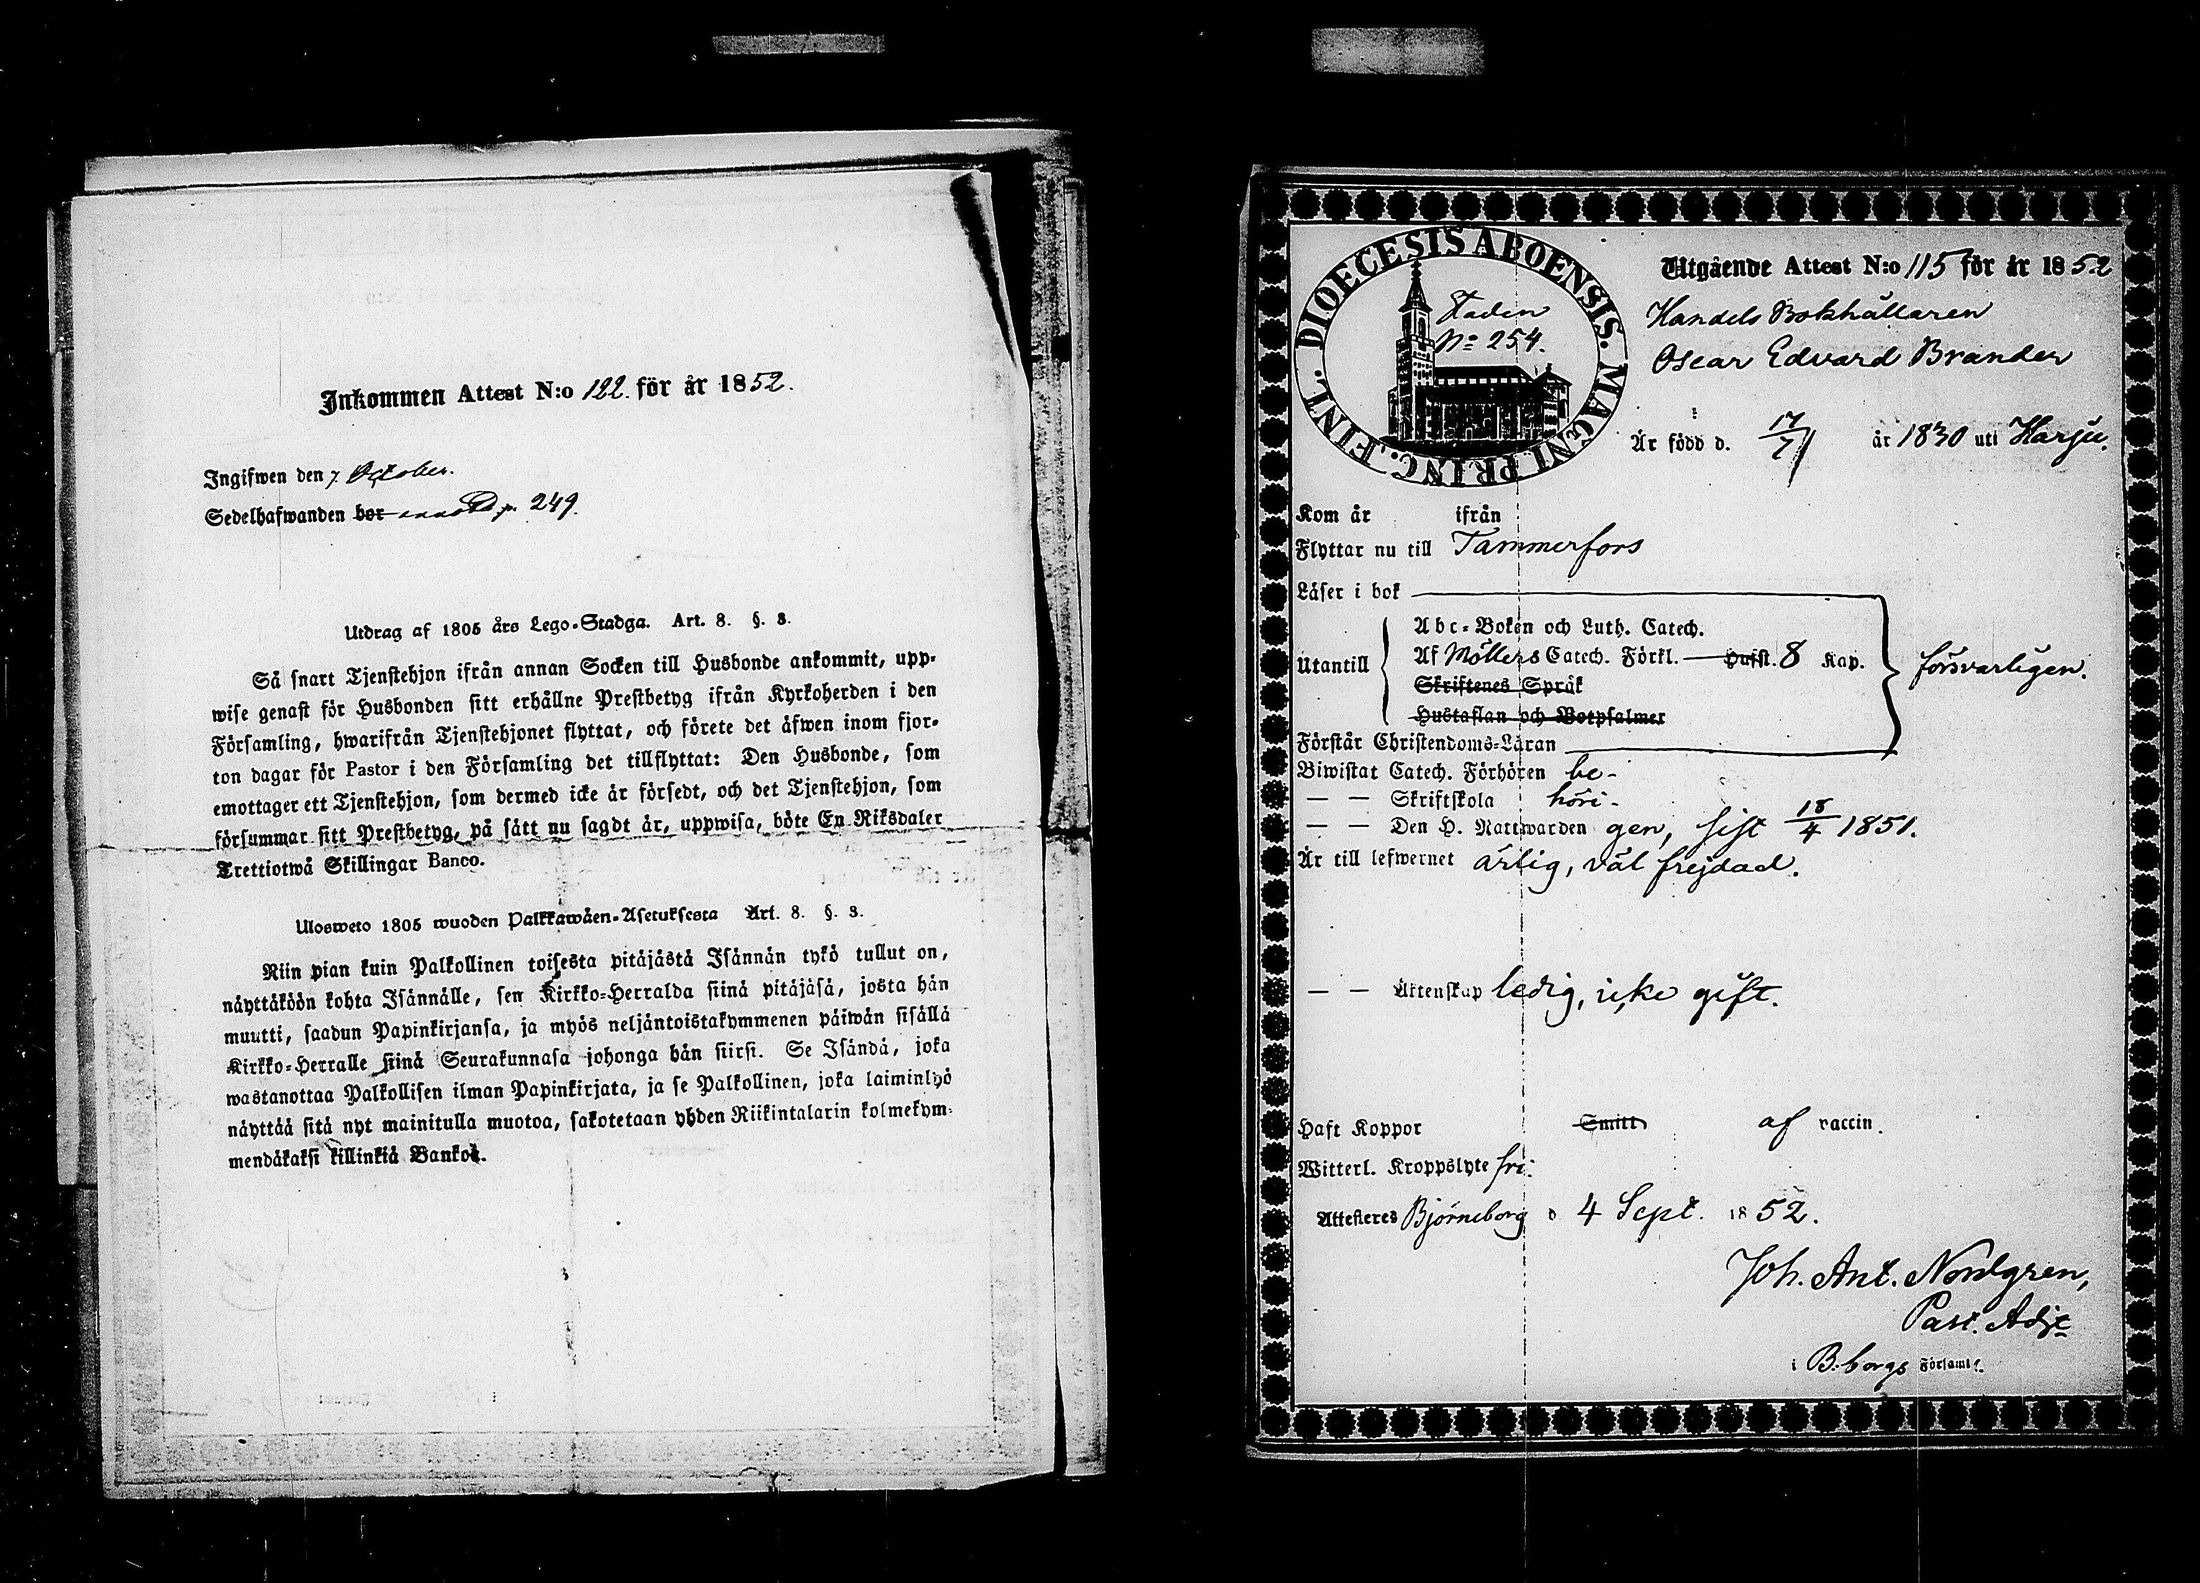 Inkommen Attest N:o 122. för år 1852.
Ingifwen den 7 October.
Sedelhafwanden bor p. 249.
Utdrag af 1805 års Lego-Stadga. Art. 8. §. 3.
Så snart Tjenstehjon ifrån annan Socken till Husbonde ankommit, upp-
wise genast för Husbonden sitt erhållne Prestbetyg ifrån Kyrkoherden i den
Församling, hwarifrån Tjenstehjonet flyttat, och förete det äfwen inom fjor-
ton dagar för Pastor i den Församling det tillflyttat: Den Husbonde, som
emottager ett Tjenstehjon, som dermed icke är försedt, och det Tjenstehjon, som
försummar sitt Prestbetyg, på sätt nu sagdt är, uppwisa, böte En Riksdaler
Trettiotwå Skillingar Banco.
Ulosweto 1805 wuoden Palkkawäen-Asetuksesta Art. 8. §. 3.
Niin pian kuin Palkollinen toisesta pitäjästä Isännän tykö tullut on,
näyttäköön kohta Isännälle, sen Kirkko-Herralda siinä pitäjäsä, josta hän
muutti, saadun Papinkirjansa, ja myös neljäntoistakymmenen päiwän sisällä
Kirkko-Herralle siinä Seurakunnasa johonga hän siirsi. Se Isändä, joka
wastanottaa Palkollisen ilman Papinkirjata, ja se Palkollinen, joka laiminlyö
näyttää sitä nyt mainitulla muotoa, sakotetaan yhden Riikintalarin kolmekym-
mendäkaksi killinkiä Bankos.
DIOECESIS ABOENSIS. MAGNI PRINC. FINL.
Staden
No 254.
Utgående Attest N:o 115 för år 1852
Handels Bokhållaren
Oscar Edvard Brander
Är född d. 17/7 år 1830 uti Harju.
Kom år ifrån
Flyttar nu till Tammerfors
Läser i bok
Utantill
Abc-Boken och Luth. Catech.
Af Möllers Catech. Förkl. Hufst. 8 Kap.
Skriftenes Språk
Hustaflan och Botpsalmer
försvarligen.
Förstår Christendoms-Läran
Biwistat Catech. Förhören be-
— — Skriftskola höri-
— — Den H. Nattwarden gen, sist 18/4 1851.
Är till lefwernet ärlig, väl frejdad.
— — Äktenskap ledig, icke gift.
Haft Koppor Smitt af vaccin.
Witterl. Kroppslyte fri.
Attesteras Björneborg d 4 Sept. 1852.
Joh. Ant. Nordgren,
Past. Adj:
i B:borgs Församl: